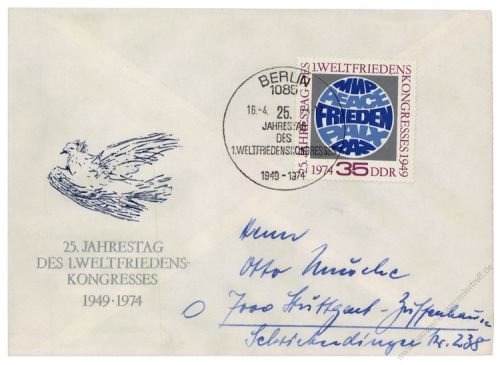 BERLIN
1085
16.-4. 25.
JAHRESTAG
DES
1.WELTFRIEDENSKONGRESSES
1949-1974
25. JAHRESTAG DES 1.WELTFRIEDENS
KONGRESSES 1949
МИР
PEACE
FRIEDEN
PAIX
PAZ
1974 35 DDR
25. JAHRESTAG
DES 1.WELTFRIEDENS-
KONGRESSES
1949 · 1974
Herrn
Otto
7000 Stuttgart - Zuffenhausen
Nr. 238